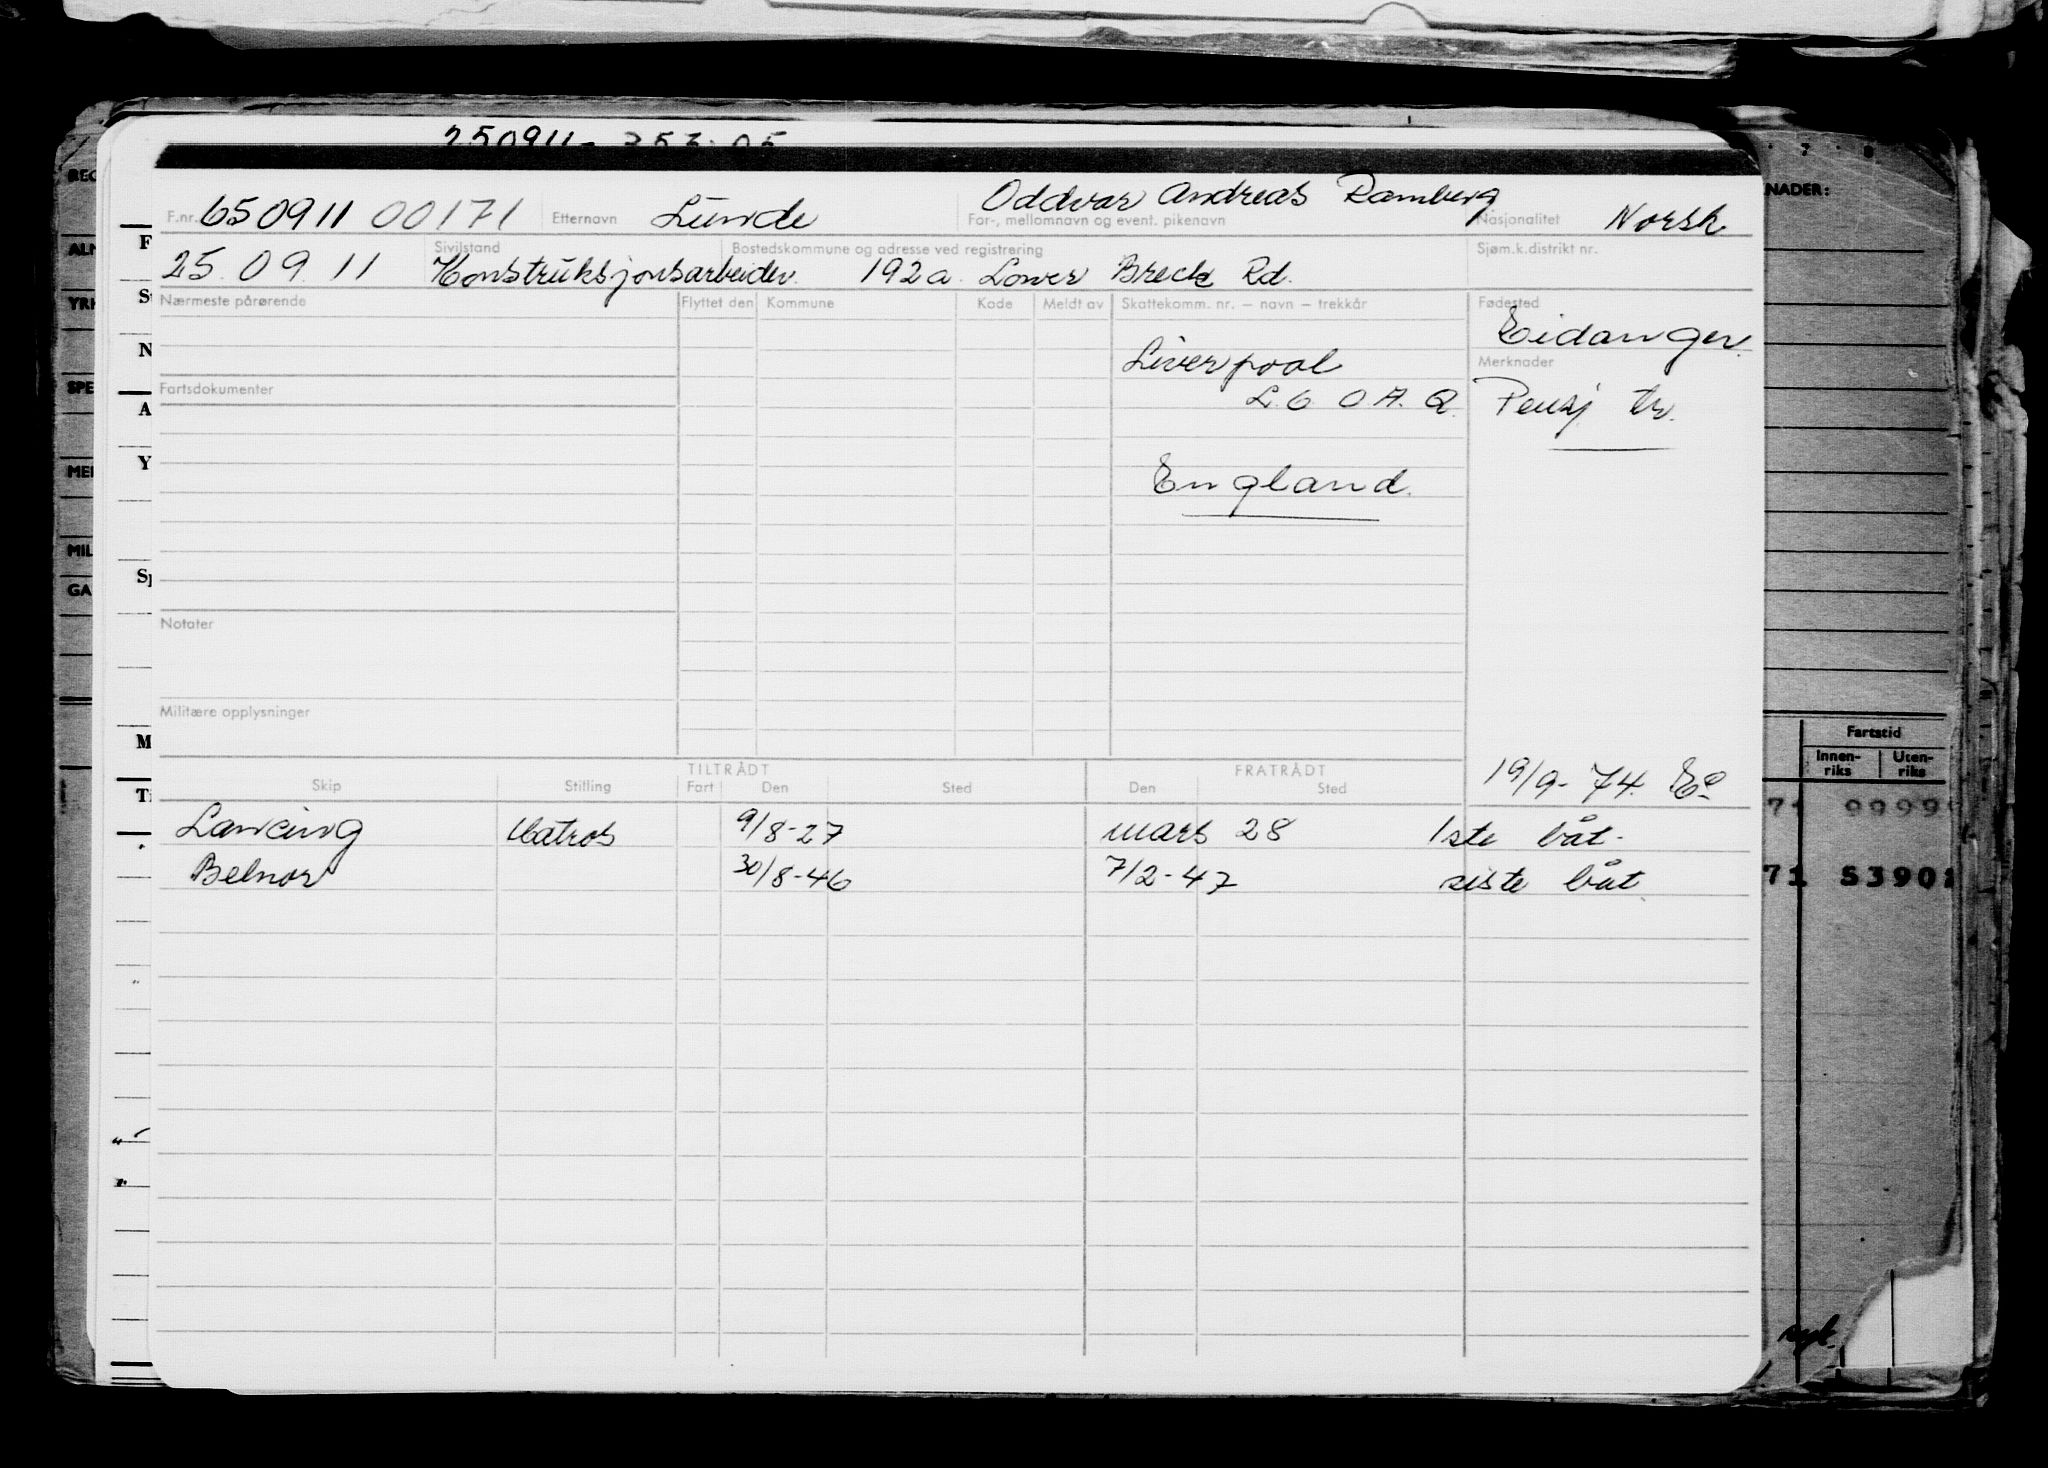 250911-
F.nr. 650911 00171 Etternavn Lunde Oddvar Andreas Ramberg
For-, mellomnavn og event. pikenavn Nasjonalitet Norsk
Sivilstand Bostedskommune og adresse ved registrering Sjøm.k.distrikt nr.
25.09.11 Konstruksjonsarbeider. 192a. Lower Breck Rd.
Nærmeste pårørende Flyttet den Kommune Kode Meldt av Skattekomm. nr. — navn — trekkår Fødested
Eidanger.
Liverpool Merknader
Fartsdokumenter L.6 O.A.Q. Pensj tr.
England.
Notater
Militære opplysninger
19/9-74.
TILTRÅDT FRATRÅDT
Skip Stilling Fart Den Sted Den Sted
Lancing Matros 9/8-27 mars 28 1ste båt.
Belnor 30/8-46 7/2-47 siste båt.
F
S
N
A
Y
Sj
M
T
REG
ALM
YRK
SPE
MER
MIL
GA
7 8
NADER:
Fartstid
Innen-riks Uten-riks
71 9999
71 S3901